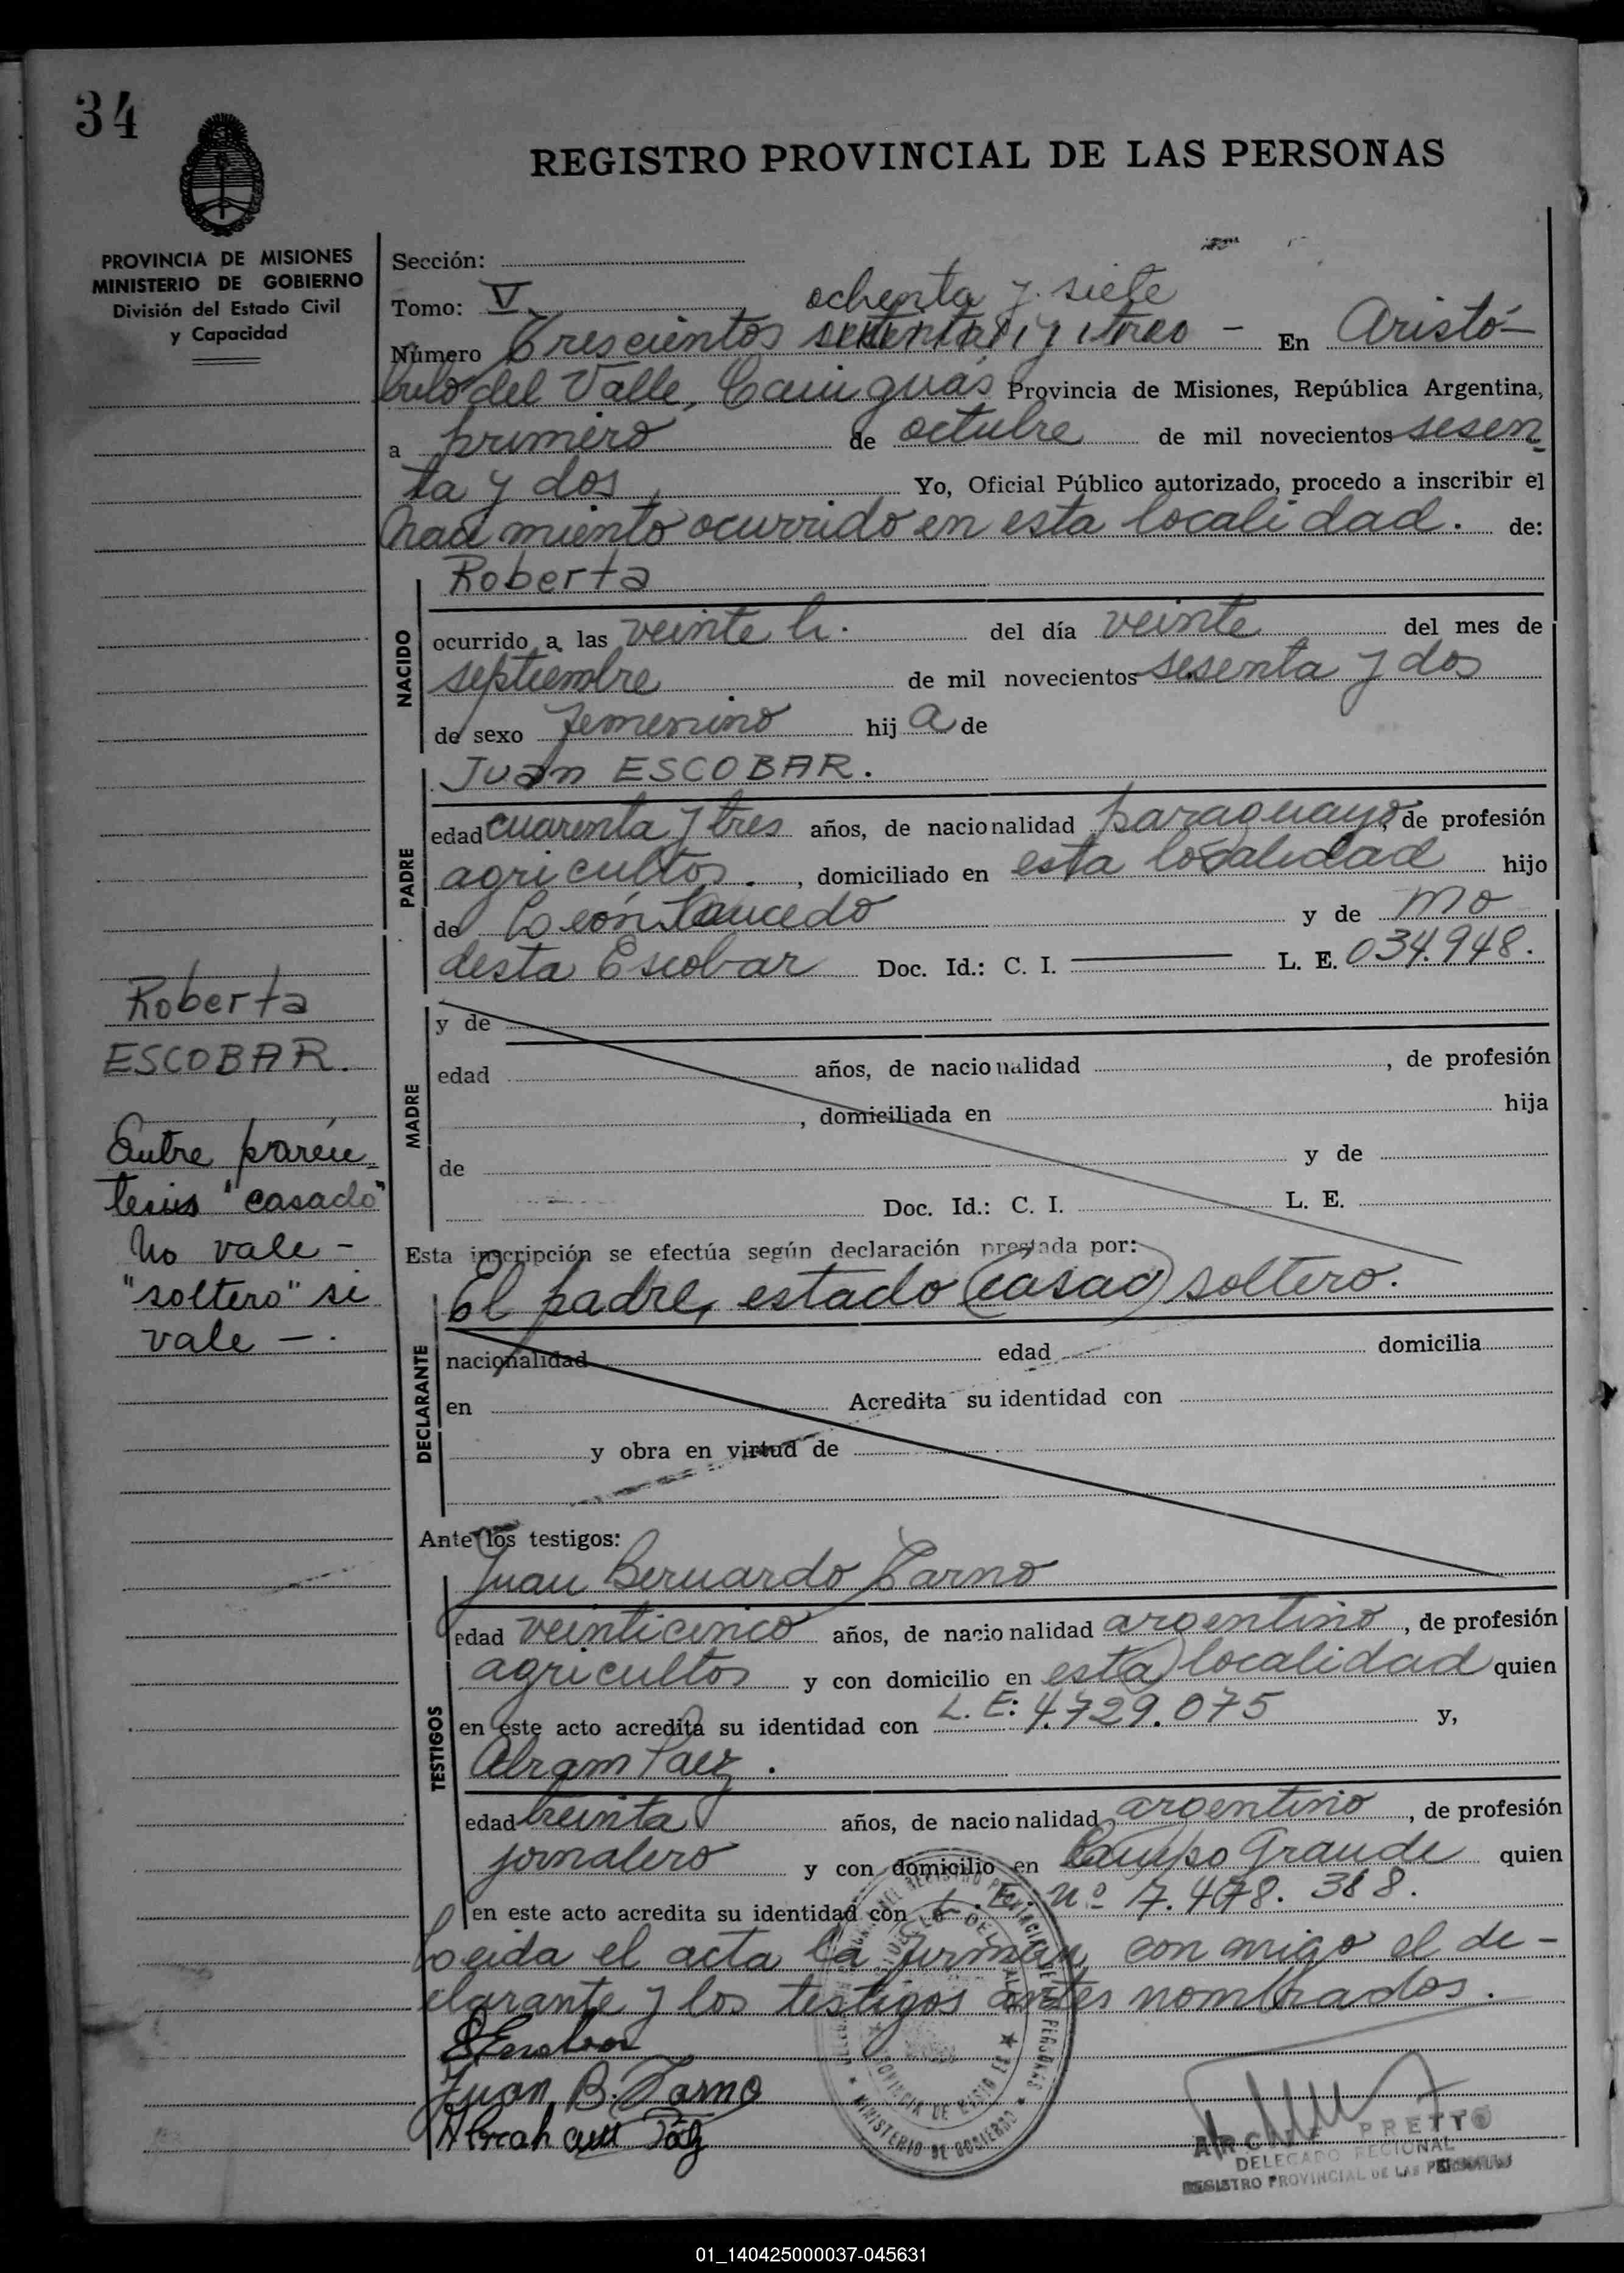 34
REGISTRO PROVINCIAL DE LAS PERSONAS
PROVINCIA DE MISIONES
MINISTERIO DE GOBIERNO
División del Estado Civil
y Capacidad
Sección:
Tomo: V
ochenta y siete
Número Trescientos setenta y tres - En Aristó-
bulo del Valle, Cainguás Provincia de Misiones, República Argentina,
a primero de octubre de mil novecientos sesen
ta y dos Yo, Oficial Público autorizado, procedo a inscribir el
nacimiento ocurrido en esta localidad. de:
NACIDO
Roberta
ocurrido a las veinte h. del día veinte del mes de
septiembre de mil novecientos sesenta y dos
de sexo femenino hij a de
PADRE
Juan ESCOBAR.
edad cuarenta y tres años, de nacionalidad paraguayo, de profesión
agricultor., domiciliado en esta localidad hijo
de León Saucedo y de Mo
desta Escobar Doc. Id.: C. I. L. E. 034.948.
Roberta
ESCOBAR.
Entre parén-
tesis "casado"
No vale -
"soltero" si
vale -.
MADRE
y de
edad años, de nacionalidad , de profesión
, domiciliada en hija
de y de
Doc. Id.: C. I. L. E.
Esta inscripción se efectúa según declaración prestada por:
DECLARANTE
El padre, estado (casado) soltero.
nacionalidad edad domicilia
en Acredita su identidad con
y obra en virtud de
Ante los testigos:
TESTIGOS
Juan Bernardo Tarno
edad veinticinco años, de nacionalidad argentino, de profesión
agricultor y con domicilio en esta localidad quien
en este acto acredita su identidad con L. E: 4.729.075 y,
Abram Paez.
edad treinta años, de nacionalidad argentino, de profesión
jornalero y con domicilio en Campo Grande quien
en este acto acredita su identidad con L. E. Nº 7.478.388.
Leida el acta la firman con migo el de-
clarante y los testigos antes nombrados.
Juan B. Tarno
Abraham Páez
MINISTERIO DE GOBIERNO
PRETTO
DELEGADO REGIONAL
REGISTRO PROVINCIAL DE LAS PERSONAS
01_140425000037-045631